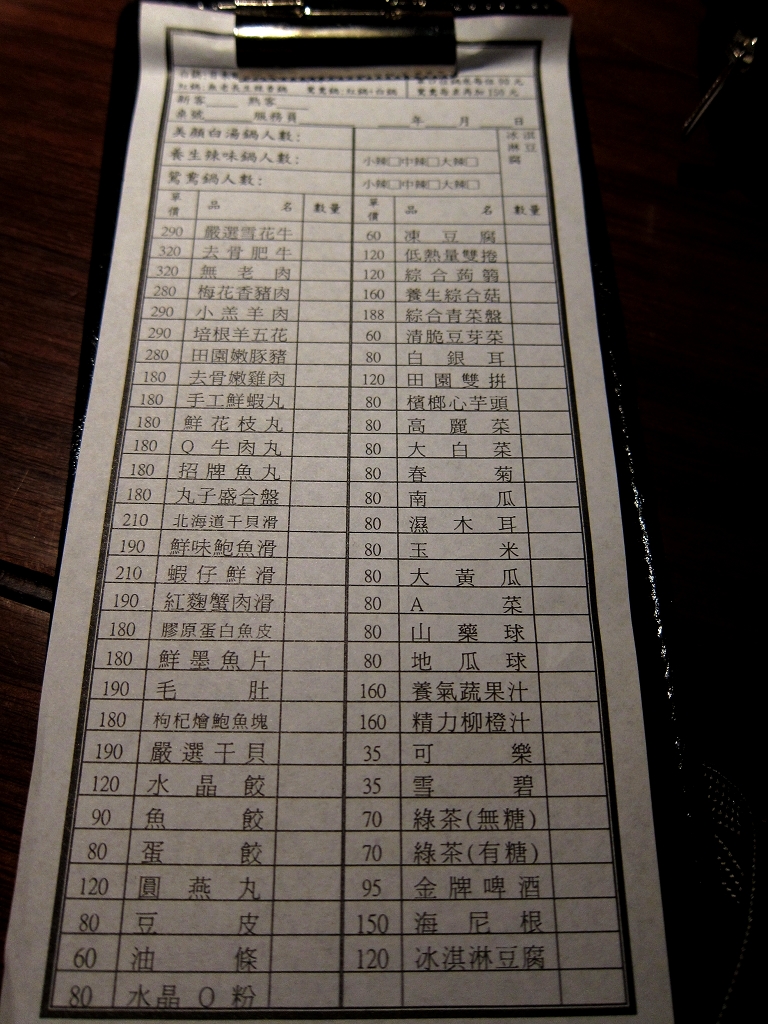 鴛鴦鍋:紅鍋+白鍋
新客____ 熟客____
桌號____服務員____ ____年____月____日
美顏白湯鍋人數: 冰淇淋豆腐
養生辣味鍋人數: 小辣□中辣□大辣□
鴛鴦鍋人數: 小辣□中辣□大辣□
單價 品名 數量 單價 品名 數量
290 嚴選雪花牛 60 凍豆腐
320 去骨肥牛 120 低熱量雙捲
320 無老肉 120 綜合蒟蒻
280 梅花香豬肉 160 養生綜合菇
290 小羔羊肉 188 綜合青菜盤
290 培根羊五花 60 清脆豆芽菜
280 田園嫩豚豬 80 白銀耳
180 去骨嫩雞肉 120 田園雙拼
180 手工鮮蝦丸 80 檳榔心芋頭
180 鮮花枝丸 80 高麗菜
180 Q牛肉丸 80 大白菜
180 招牌魚丸 80 春菊
180 丸子盛合盤 80 南瓜
210 北海道干貝滑 80 濕木耳
190 鮮味鮑魚滑 80 玉米
210 蝦仔鮮滑 80 大黃瓜
190 紅麴蟹肉滑 80 A菜
180 膠原蛋白魚皮 80 山藥球
180 鮮墨魚片 80 地瓜球
190 毛肚 160 養氣蔬果汁
180 枸杞燴鮑魚塊 160 精力柳橙汁
190 嚴選干貝 35 可樂
120 水晶餃 35 雪碧
90 魚餃 70 綠茶(無糖)
80 蛋餃 70 綠茶(有糖)
120 圓燕丸 95 金牌啤酒
80 豆皮 150 海尼根
60 油條 120 冰淇淋豆腐
80 水晶Q粉